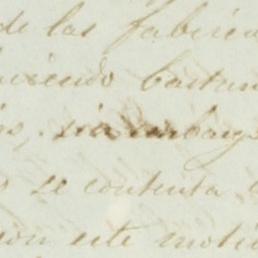 de las fabrica
siendo bastan
sin embargo
se contenta
con este moti